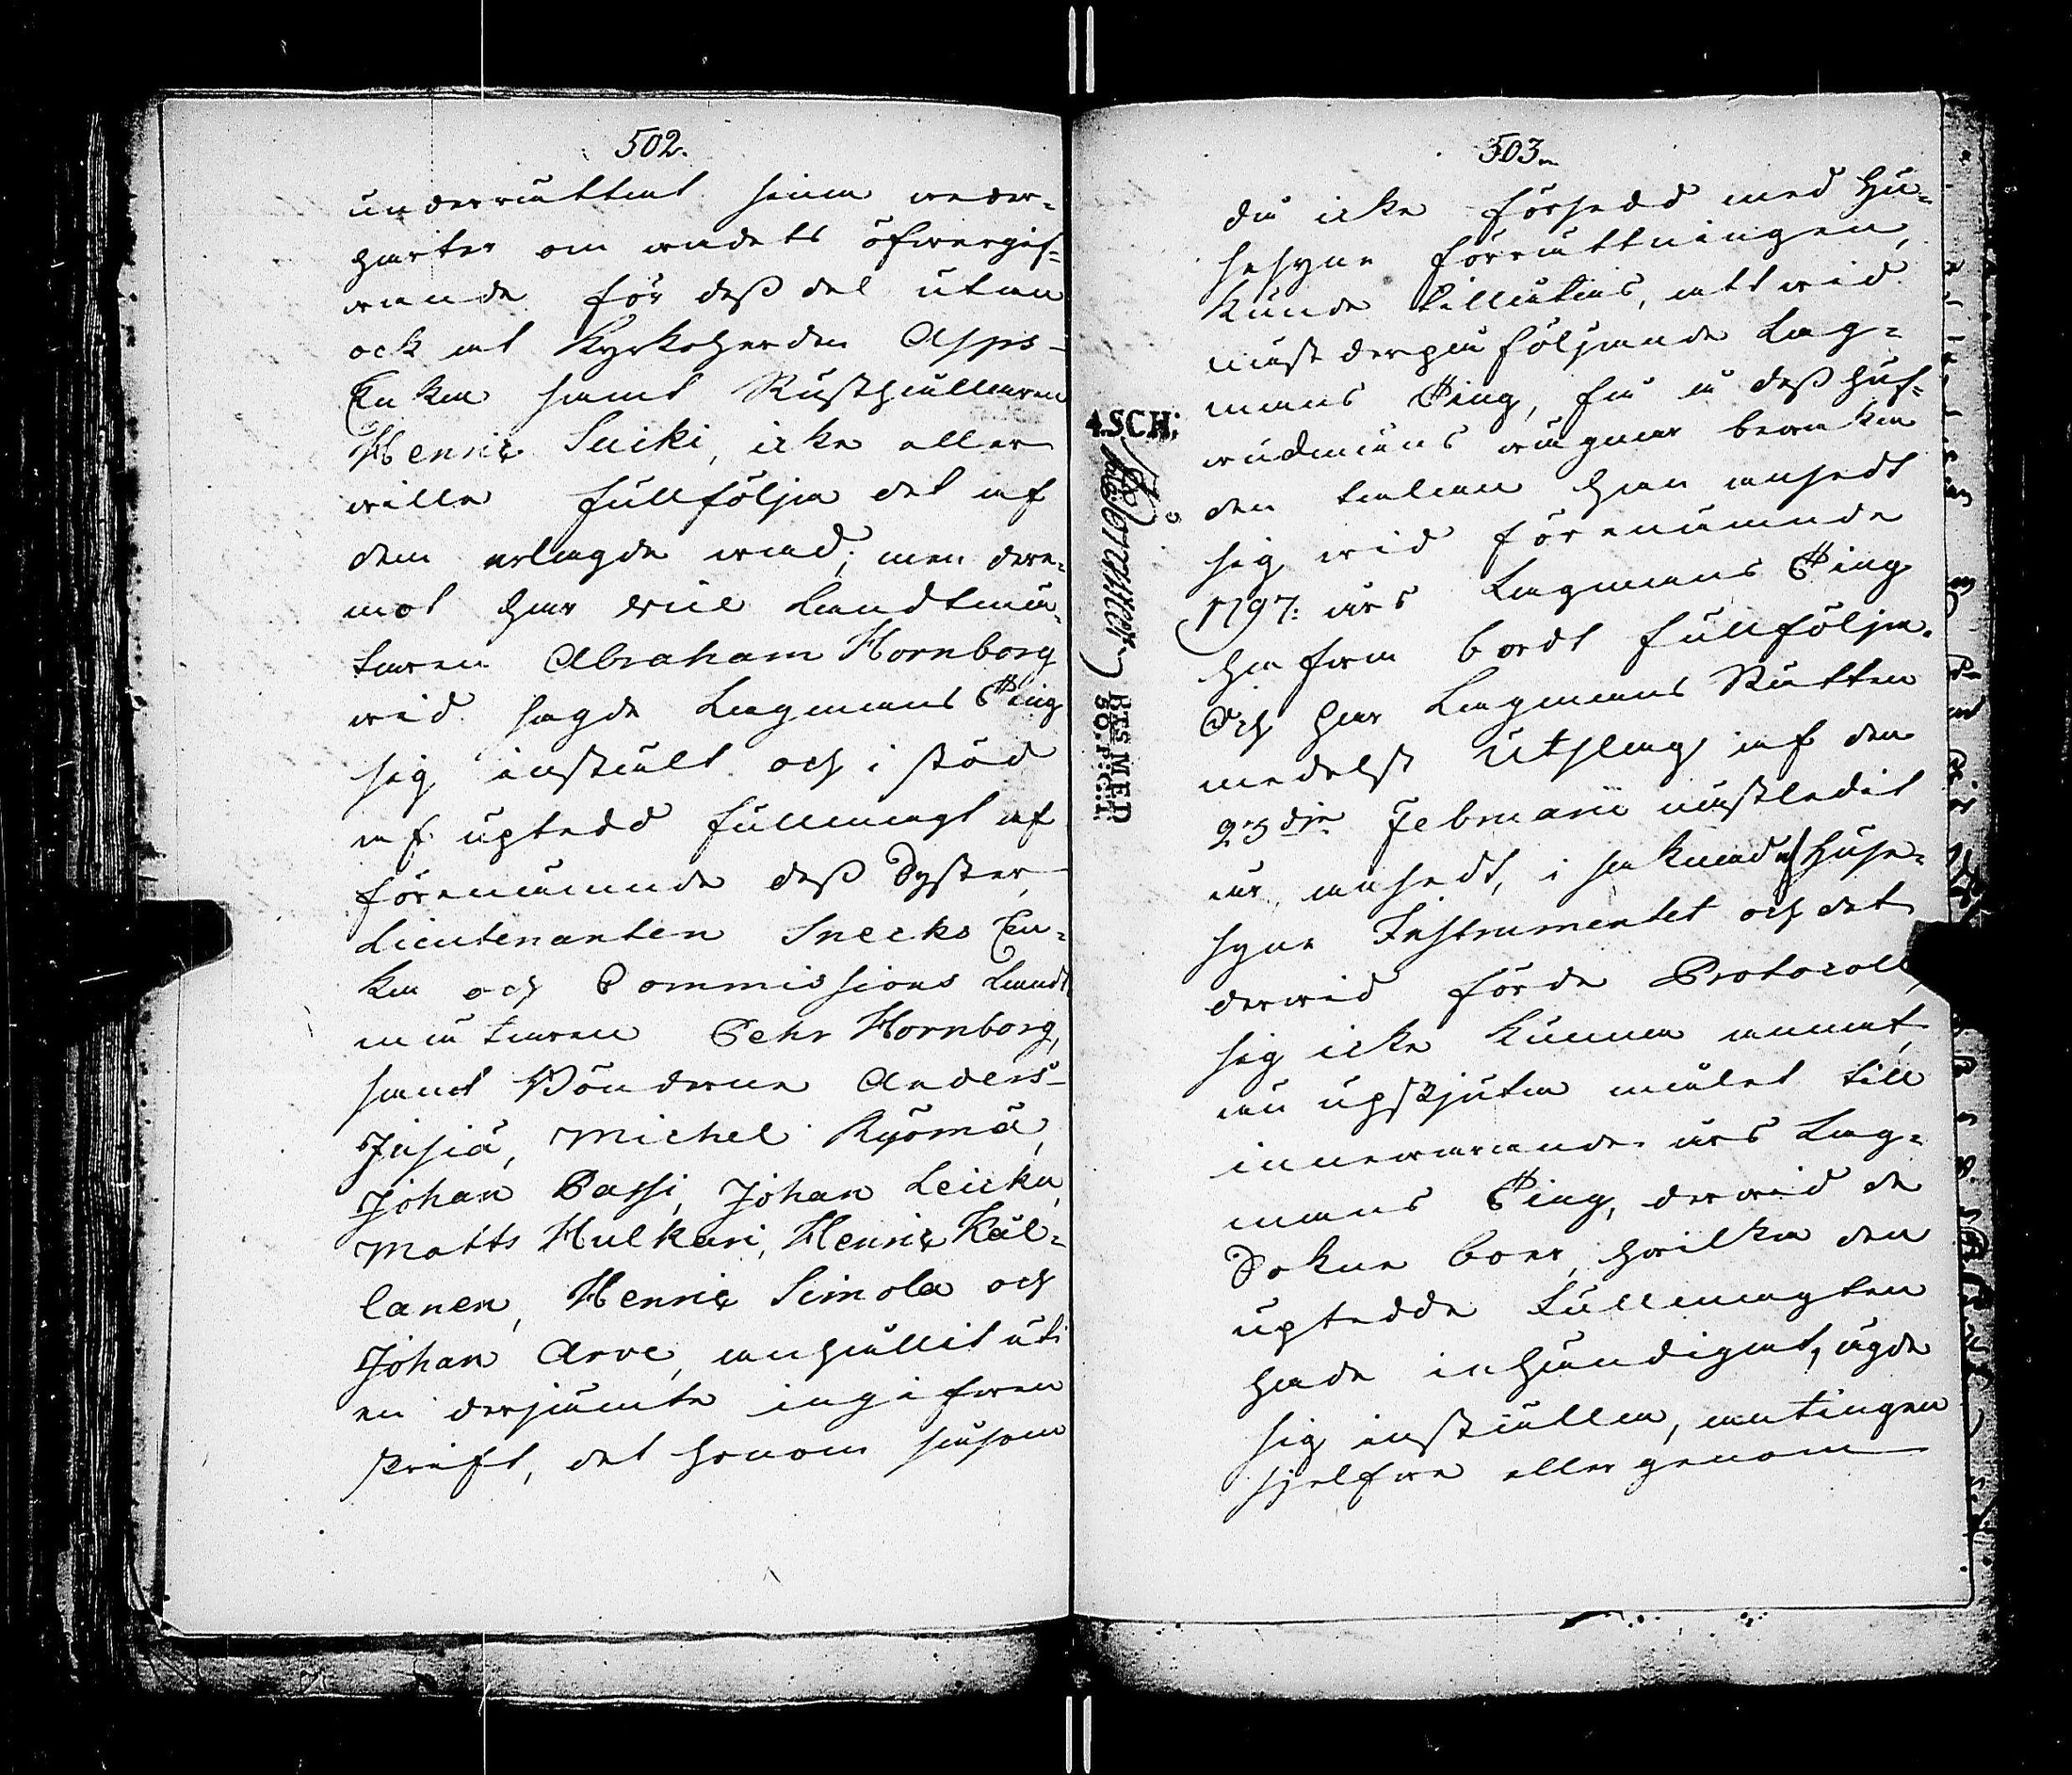 502.
underrättat sina weder-
parter om wadets öfwergif-
wande för deß del utan
ock at Kyrkoherden Apps-
Enka samt Rusthållaren
Henric Suiki, icke eller
wille fullfölja det af
dem erlagde wad; men dere-
mot har wäl Landtmä-
taren Abraham Hornborg
wid sagde Lagmans Ting
sig instält och i stöd
af uptedd fullmagt af
förenämnde deß Syster,
Lieutenanten Snecks En-
ka och Commissions Landt
mätaren Pehr Hornborg,
samt Bönderne Anders
Jäsiä, Michel Ryömä,
Johan Passi, Johan Leicka,
Matts Hulkari, Henric Käl-
lanen, Henric Simola och
Johan Arve, anhållit uti
en derjämte ingifwen
skrift, det honom såsom
503.
då icke försedd med Hu-
sesyne förrättningen,
kunde tillåtas, att wid
näst derpå följande Lag-
mans Ting, få å deß huf-
wudmäns wägnar bewaka
den talan han ansedt
sig wid förenämnde
1797: års Lagmans Ting
hafwa bordt fullfölja.
Och har Lagmans Rätten
medelst Utslag af den
23dje Februarii nästledit
år, ansedt, i saknad af Huse-
syne Instrumentet och det
derwid förde Protocoll,
sig icke kunna annat,
än upskjuta målet till
innewarande års Lag-
mans Ting, derwid de
Sokne boer, hwilka den
uptedde Fullmagten
hade inhändigat, ägde
sig inställa, antingen
sjelfwe eller genom
4.SCH:
BTS MED
50. P:C:T.